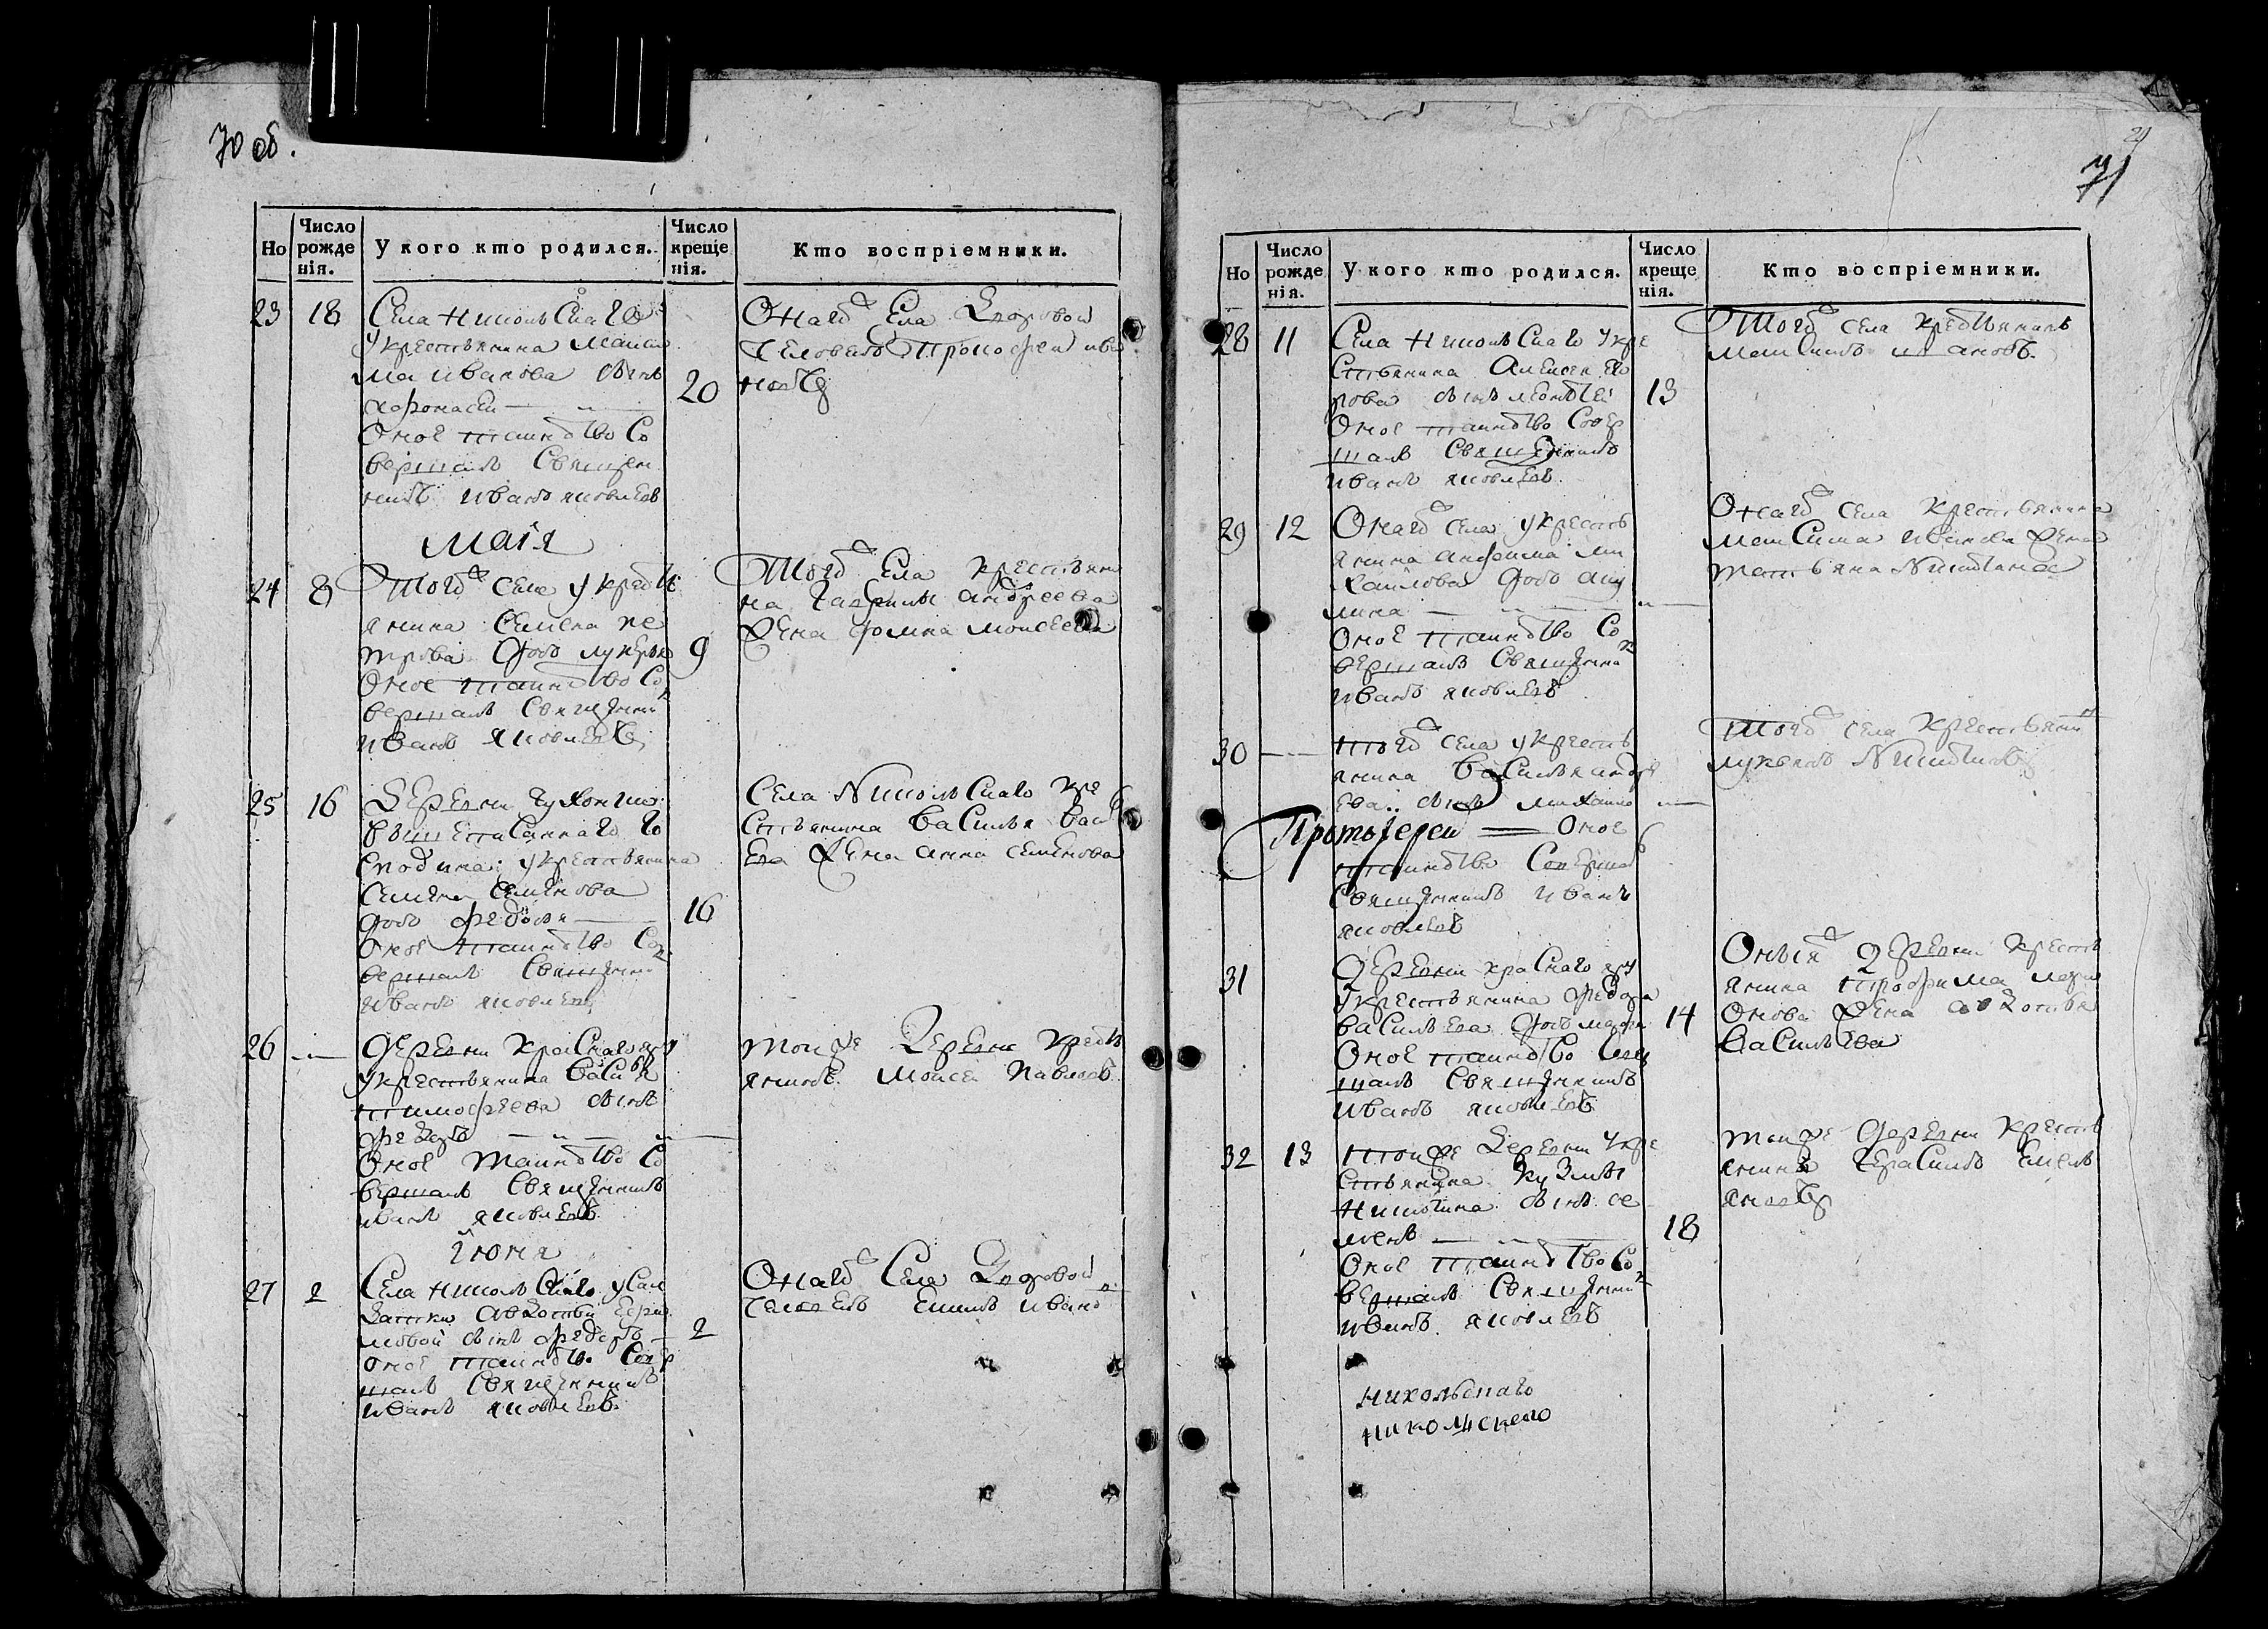 70 об.
Но
Число рожденія.
У кого кто родился.
Число крещенія.
Кто воспріемники.
23 18
Села Никольскаго
у крестьянина Макси
ма иванова сынъ
20
Онаго Села Дворовой
человекъ Прокофей ива
новъ
Оное таинство Со
вершалъ Священ
никъ иванъ яковлевъ
маія
24 8
Тогожъ села у кресть
янина Семена пе
трова дочь лукерья
9
Оное таинство Со
вершалъ Священник
иванъ яковлевъ
Тогожъ Села крестьяни
на гаврилы андреева
жена фомина моисеева
25 16
Деревни
у крестьянина
Семена семенова
дочь федосья
16
Оное таинство Со
вершалъ Священник
иванъ яковлевъ
Села Никольскаго кре
стьянина василья васил
ева жена анна семенова
26
деревни краснаго яру
у крестьянина василья
тимофеева сынъ
федоръ
Оное таинство Со
вершалъ Священникъ
иванъ яковлевъ
тойже деревни кресть
янинъ моисей павловъ
іюня
27 2
Села Никольскаго у Сол
датки авдотьи
сынъ федоръ
2
оное таинство Совер
шалъ Священникъ
иванъ яковлевъ
Онаго Села Дворовой
человекъ емилъ иванов
71
Но
Число рожденія.
У кого кто родился.
Число крещенія.
Кто воспріемники.
28 11
Села Никольскаго у кре
стьянина алексея его
рова сынъ леонтей
13
Оное таинство Совер
шалъ Священникъ
иванъ яковлевъ
Тогожъ села крестьянинъ
максимъ ивановъ
29 12
Онаго села у кресть
янина анфима ми
хайлова дочь аку
лина
Оное таинство Со
вершалъ Священник
иванъ яковлевъ
Онаго села крестьянина
максима иванова жена
татьяна Никитина
30
тогожъ села у кресть
янина василья андре
ева сынъ михайло
Протоіерей
Оное
таинство Совершал
Священникъ иванъ
яковлевъ
Тогожъ села крестьянин
лукьянъ Никитинъ
31
деревни краснаго яру
у крестьянина федора
васильева дочь марья
14
Оное таинство Совер
шалъ Священникъ
иванъ яковлевъ
Оныя деревни кресть
янина трофима лари
онова жена авдотья
васильева
32 13
тойже деревни у кре
стьянина кузмы
Никитина сынъ се
менъ
18
Оное таинство Со
вершалъ Священник
иванъ яковлевъ
тойже деревни кресть
янинъ герасимъ емель
яновъ
никольскаго
никольскаго